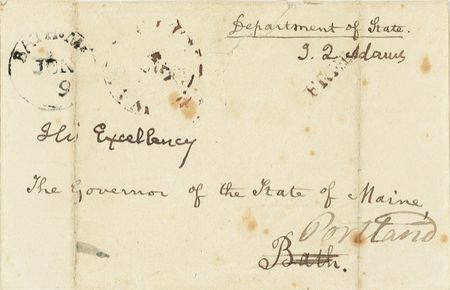 Department of State.
J. Q. Adams
FREE
BATH. ME.
JUN
9
His Excellency
The Governor of the State of Maine,
Portland
Bath.